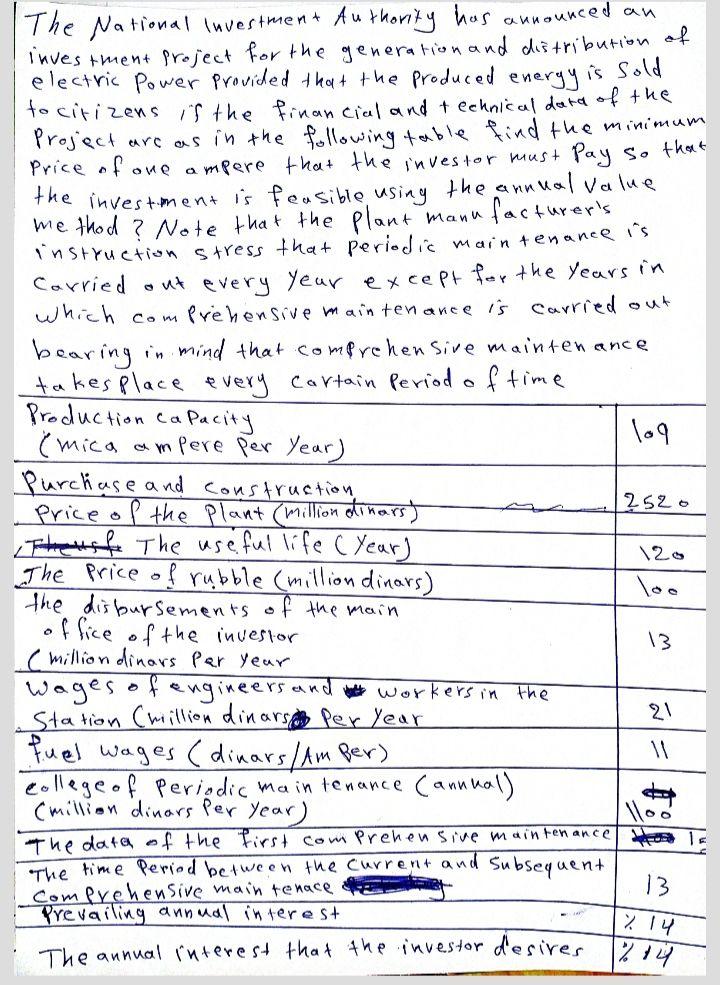 The National Investment Authority has announced an
investment project for the generation and distribution of
electric Power Provided that the Produced energy is Sold
to citizens if the financial and technical data of the
Project are as in the following table find the minimum
Price of one ampere that the investor must Pay so that
the investment is feasible using the annual value
method? Note that the Plant manufacturer's
instruction stress that periodic maintenance is
Carried out every Year except for the Years in
which comprehensive maintenance is carried out
bearing in mind that comprehensive maintenance
takes Place every Certain Period of time
Production capacity
(mica ampere Per Year)
109
Purchase and construction
Price of the Plant (million dinars)
2520
The useful life (Year)
120
The Price of rubble (million dinars)
100
the disbursements of the main
office of the investor
(million dinars Per Year
13
wages of engineers and workers in the
Station (million dinars Per Year
21
fuel wages (dinars/Amper)
11
college of Periodic maintenance (annual)
(million dinars Per Year)
1100
The data of the first comprehensive maintenance
The time Period between the Current and Subsequent
Comprehensive maintenace
13
Prevailing annual interest
% 14
The annual interest that the investor desires
% 14